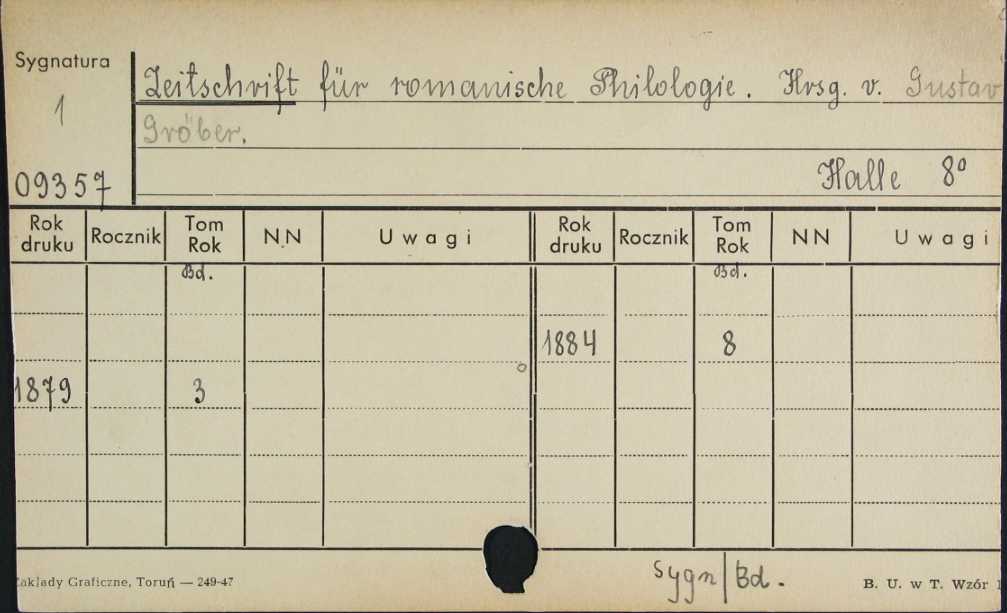 Sygnatura
1
09357
Zeitschrift für romanische Philologie. Hrsg. v. Gustav
Gröber.
Halle 8⁰
Rok druku Rocznik Tom Rok NN Uwagi Rok druku Rocznik Tom Rok NN Uwagi
Bd. Bd.
1884 8
1879 3
Sygn/Bd.
Zakłady Graficzne, Toruń — 249-47 B. U. w T. Wzór 1